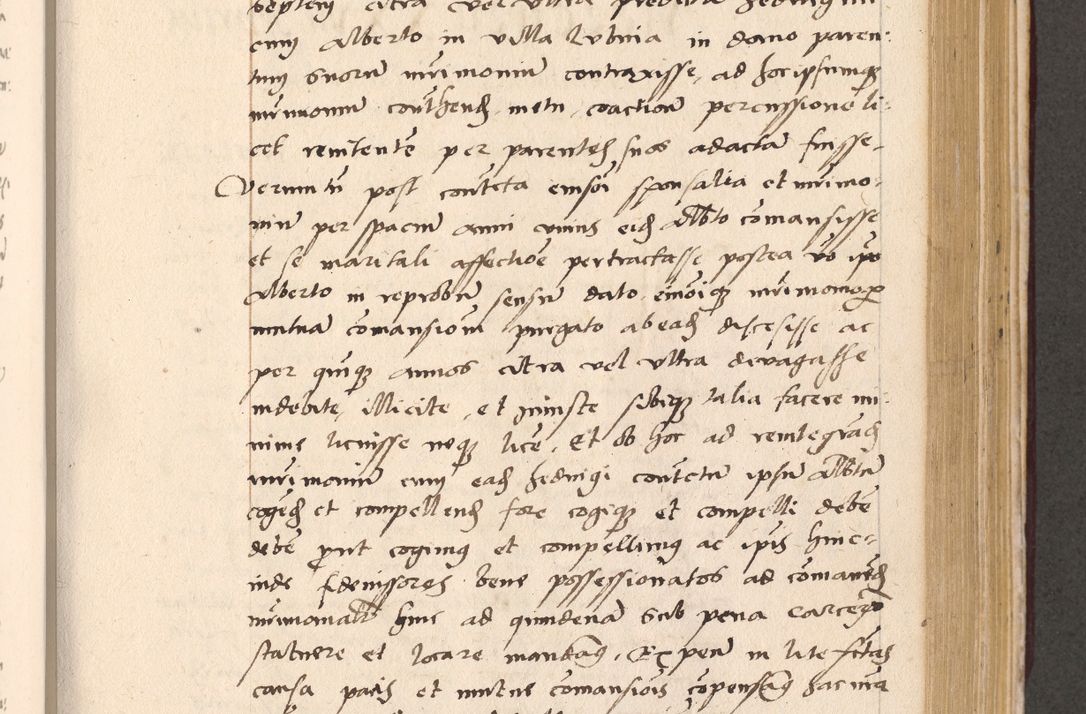 septem citra vel ultra predicta Hedvigim
cum Alberto in villa Lubnia in domo paren-
tum suorum mrimonium contraxisse, ad hocipsumque
mrimonium conthend metu, coactione percussione li-
cet renitente per parentes suos adactam fuisse,
Verumtn post contcta eiusmodi sponsalia et mrimo-
nium per spacium anni unius eid Albto comansisse
et se maritali affectione pertractasse postea vo ipo
Alberto in reprobum sensum dato, eiusque mrimonio per
mutuam comansionem purgato ab ead discesisse ac
per quinque annos citra vel ultra devagasse
indebite, illicite, et iniuste sibique talia facere mi-
nime licuisse neque lice, Et ob hoc ad reintegrand
mrimonium cum ead Hedvigi contctum ipsum Albtum
cogend et compellend fore cogique et compelli debe
debe prout cogimus et compellimus ac ipis hinc-
inde fideiussores bene possessionatos ad comanend
mrimonialr hinc ad quindenam sub pena carceris
statuere et locare mandamus, Expen in lite fctas
causa pacis et mutue comansionis copensamus hac nra